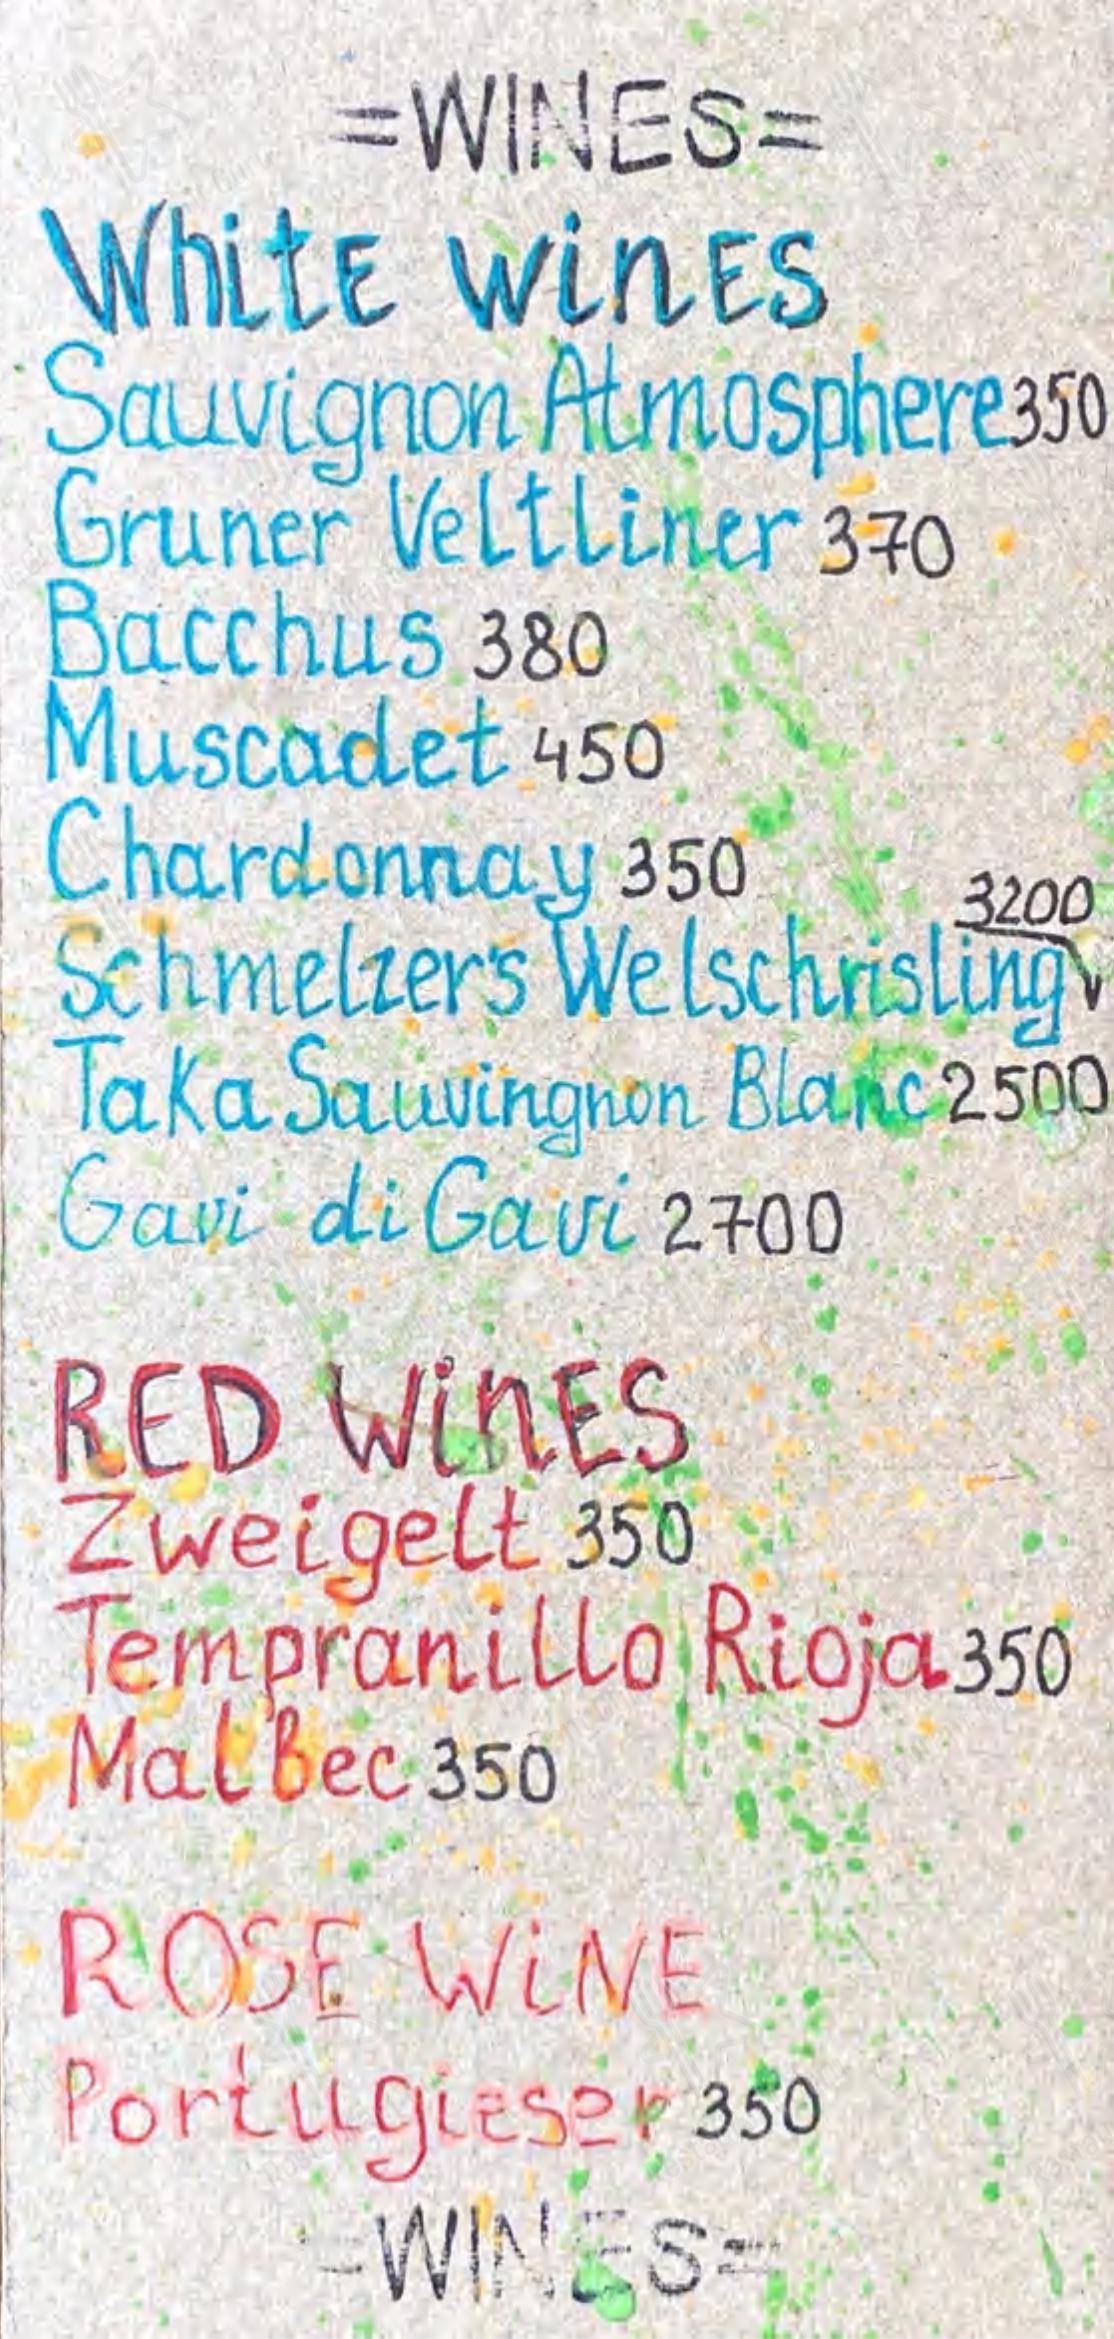 =WINES=
White wines
Sauvignon Atmosphere 350
Gruner Veltliner 370
Bacchus 380
Muscadet 450
Chardonnay 350
3200
Schmelzer's Welschrisling
Taka Sauvingnon Blanc 2500
Gavi di Gavi 2700
RED WINES
Zweigelt 350
Tempranillo Rioja 350
Malbec 350
ROSE WINE
Portugieser 350
=WINES=